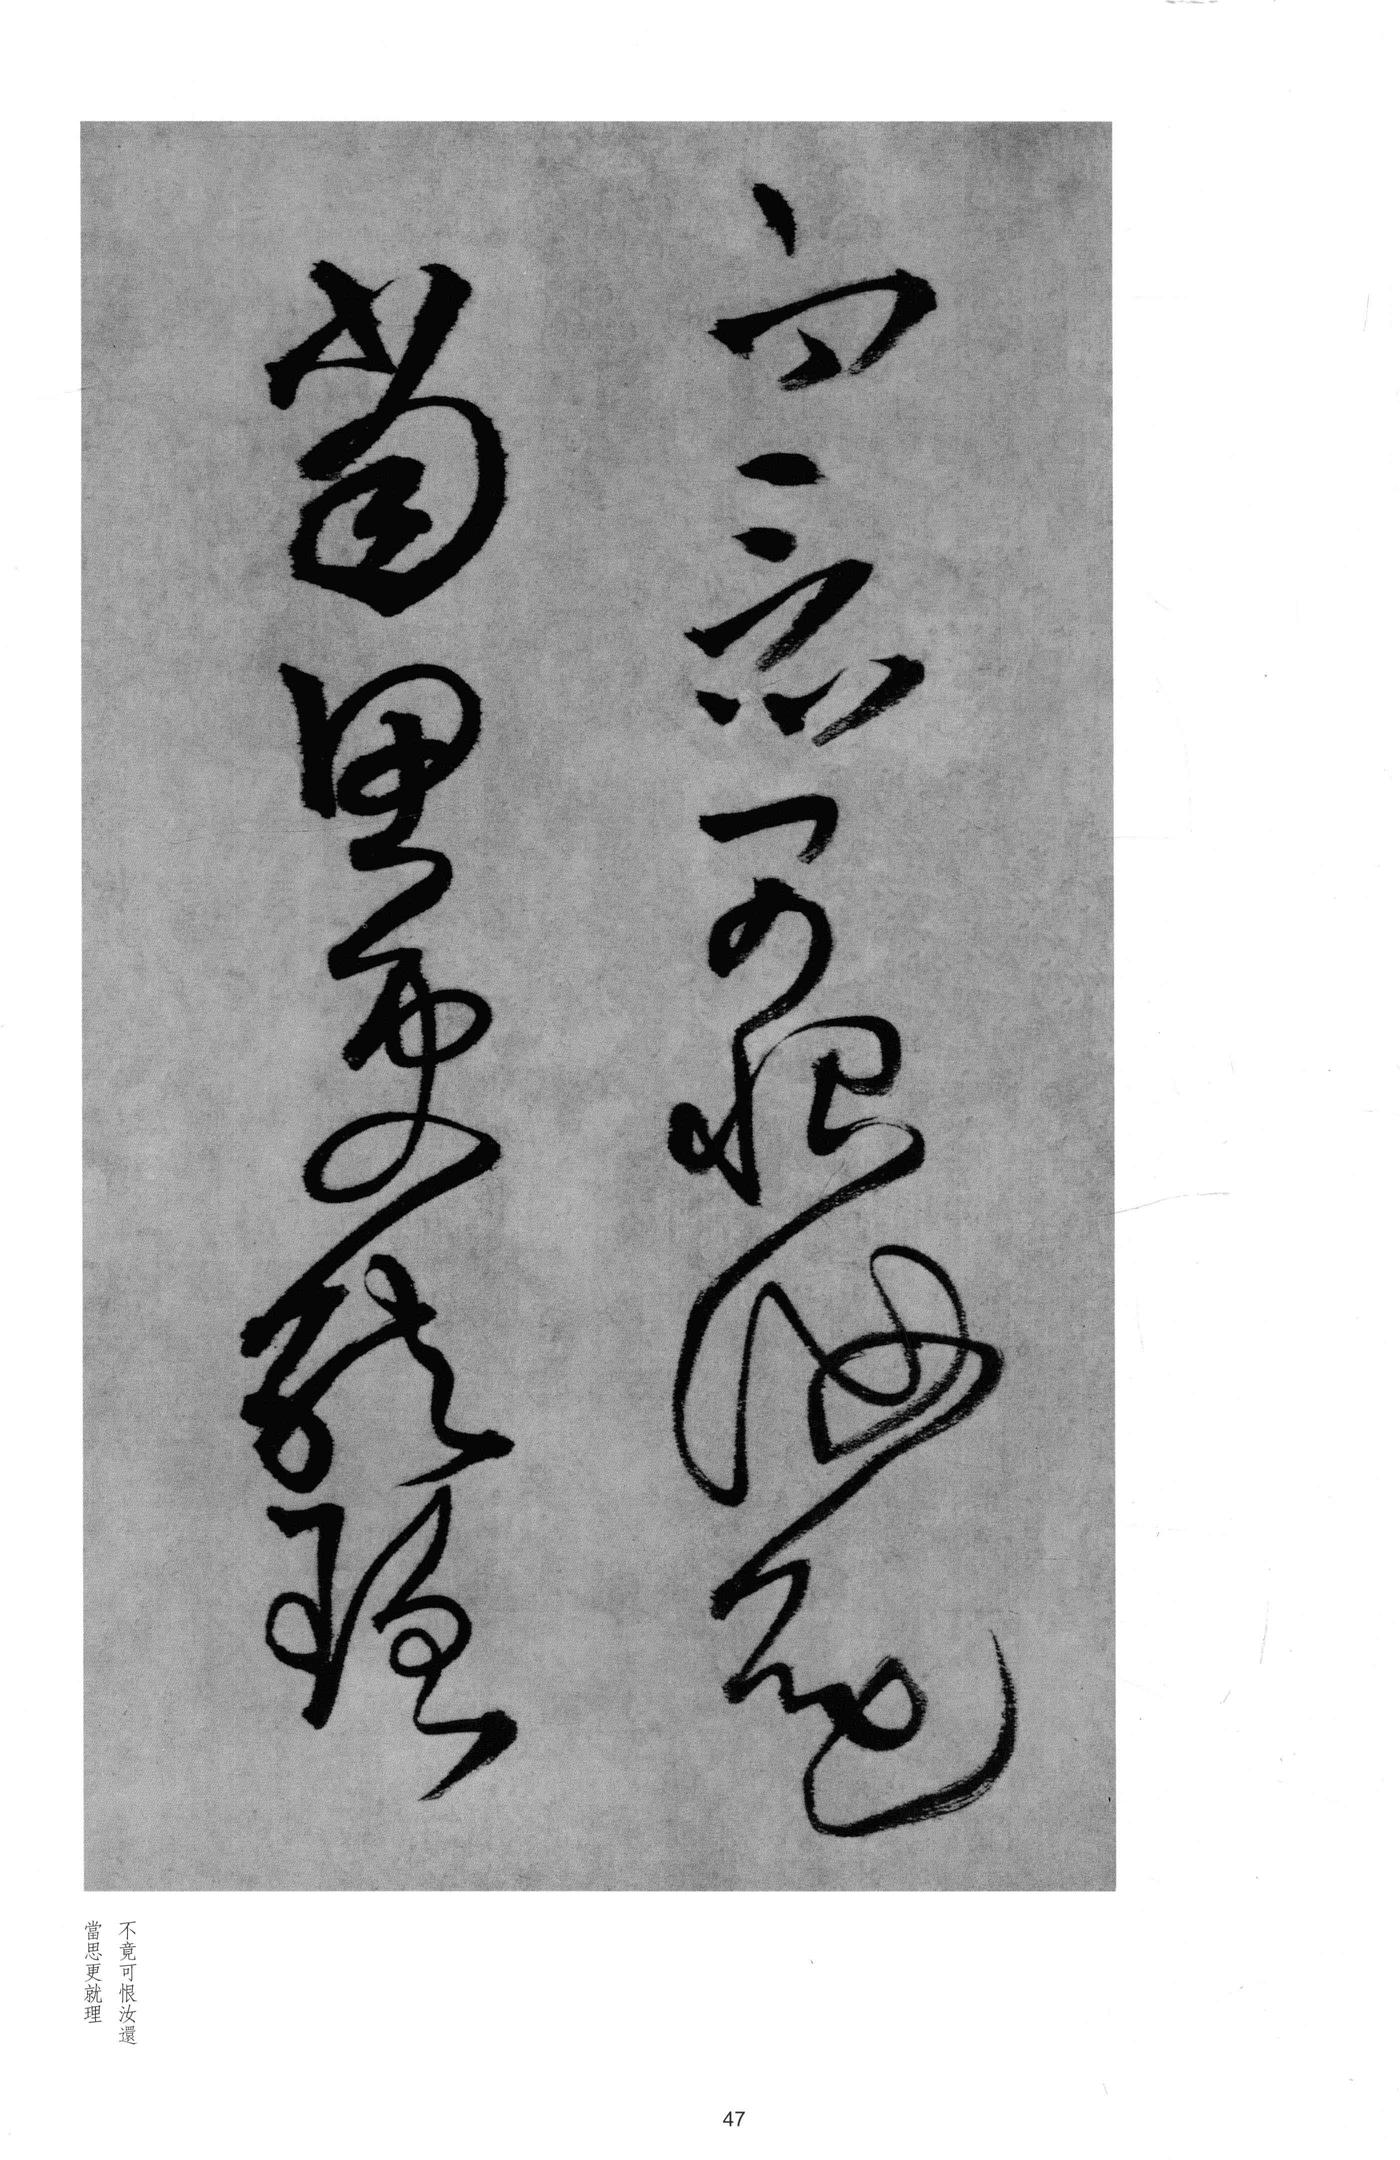 不竟可恨汝還
當思更就理
不竟可恨汝還
當思更就理
47